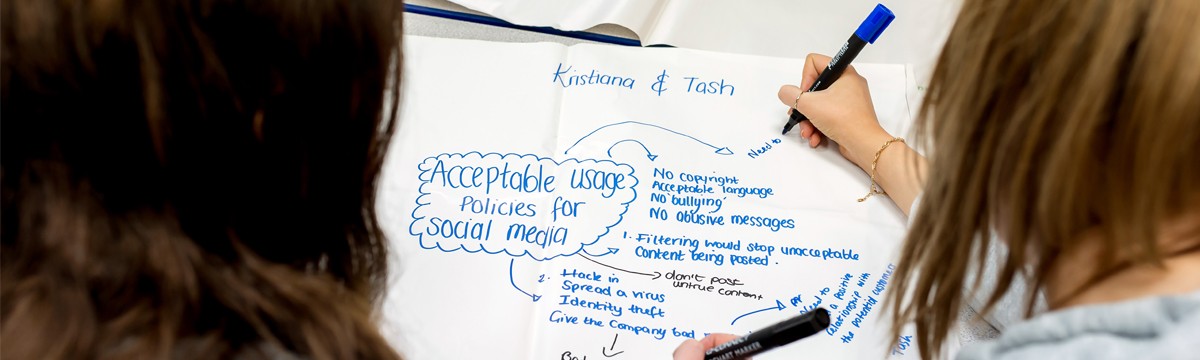 Kristiana & Tash
Need to
Acceptable usage
Policies for
social media
No copyright
Acceptable language
No bullying
No abusive messages
1. Filtering would stop unacceptable
Content being posted.
don't post
untrue content
2. Hack in
Spread a virus
Identity theft
Give the Company bad
PR
Need to
a positive
relationship with
the potential customers
Tash
CHART MARKER